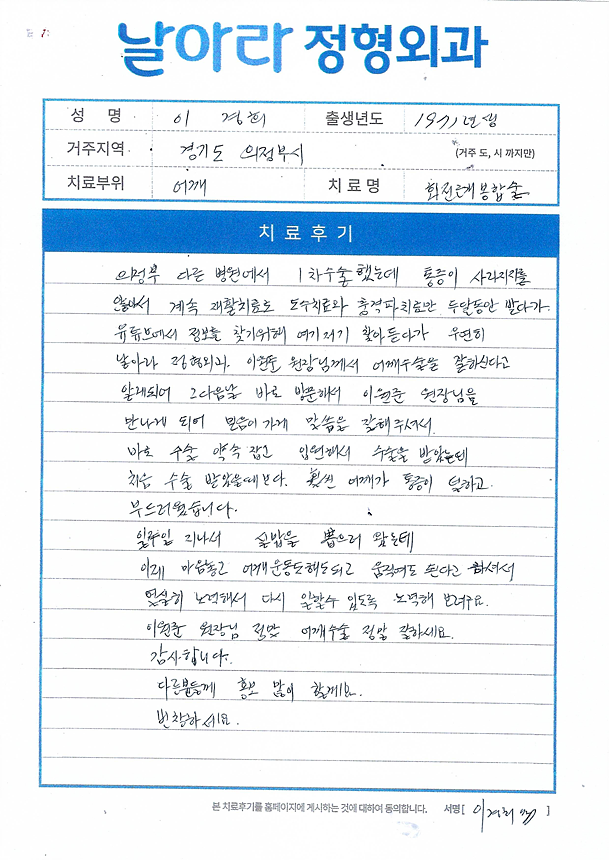 날아라 정형외과
성 명 이경희 출생년도 1971년생
거주지역 경기도 의정부시 (거주 도, 시 까지만)
치료부위 어깨 치료명 회전근개봉합술
치료후기
의정부 다른 병원에서 1차수술 했는데 통증이 사라지지를
않아서 계속 재활치료로 도수치료와 충격파치료만 두달동안 받다가.
유튜브에서 정보를 찾기위해 여기저기 찾아듣다가 우연히
날아라 정형외과. 이원준 원장님께서 어깨수술을 잘하신다고
알게되어 그다음날 바로 방문해서 이원준 원장님을
만나게 되어 믿음이가게 말씀을 잘해주셔서.
바로 수술 약속 잡고 입원해서 수술을 받았는데
처음 수술 받았을때보다. 훨씬 어깨가 통증이 덜하고.
부드러웠습니다.
일주일 지나서 실밥을 뽑으러 왔는데
이제 마음놓고 어깨운동도해도되고 움직여도 된다고 하셔서
열심히 노력해서 다시 일할수 있도록 노력해 보려구요.
이원준 원장님 정말 어깨수술 정말 잘하세요.
감사합니다.
다른분들께 홍보 많이 할게요.
번창하세요.
본 치료후기를 홈페이지에 게시하는 것에 대하여 동의합니다. 서명[ 이경희 ]